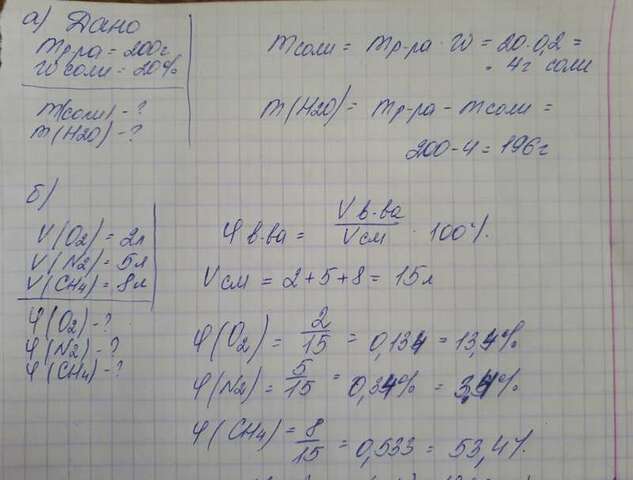 а) Дано
mр-ра = 200г
W соли = 20%
m(соли) - ?
m(H2O) - ?
mсоли = mр-ра · W = 20·0,2 =
4г соли
m(H2O) = mр-ра - mсоли =
200-4=196г
б)
V(O2) = 2л
V(N2) = 5л
V(CH4) = 8л
φ(O2) - ?
φ(N2) - ?
φ(CH4) - ?
φ в-ва = V в-ва / V см · 100%
V см = 2+5+8 = 15л
φ(O2) = 2/15 = 0,134 = 13,4%
φ(N2) = 5/15 = 0,34% = 3,4%
φ(CH4) = 8/15 = 0,533 = 53,4%